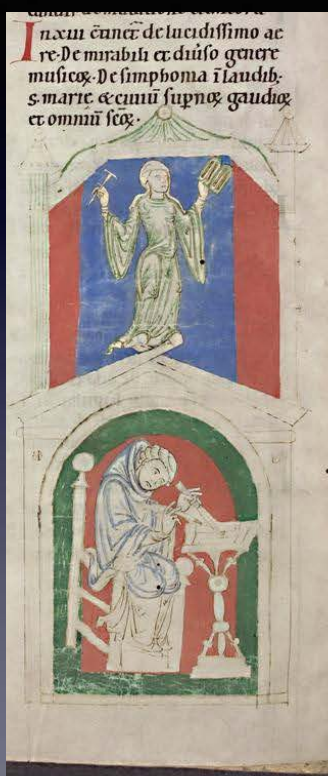 Inxiii c̄tinet̄ de lucidissimo ae
re· De mirabili et diu̾so genere
musicoꝝ· De simphonia ī laudib;
s. marie· & ciuiū suꝑnoꝝ gaudioꝝ
et omniū scōꝝ·